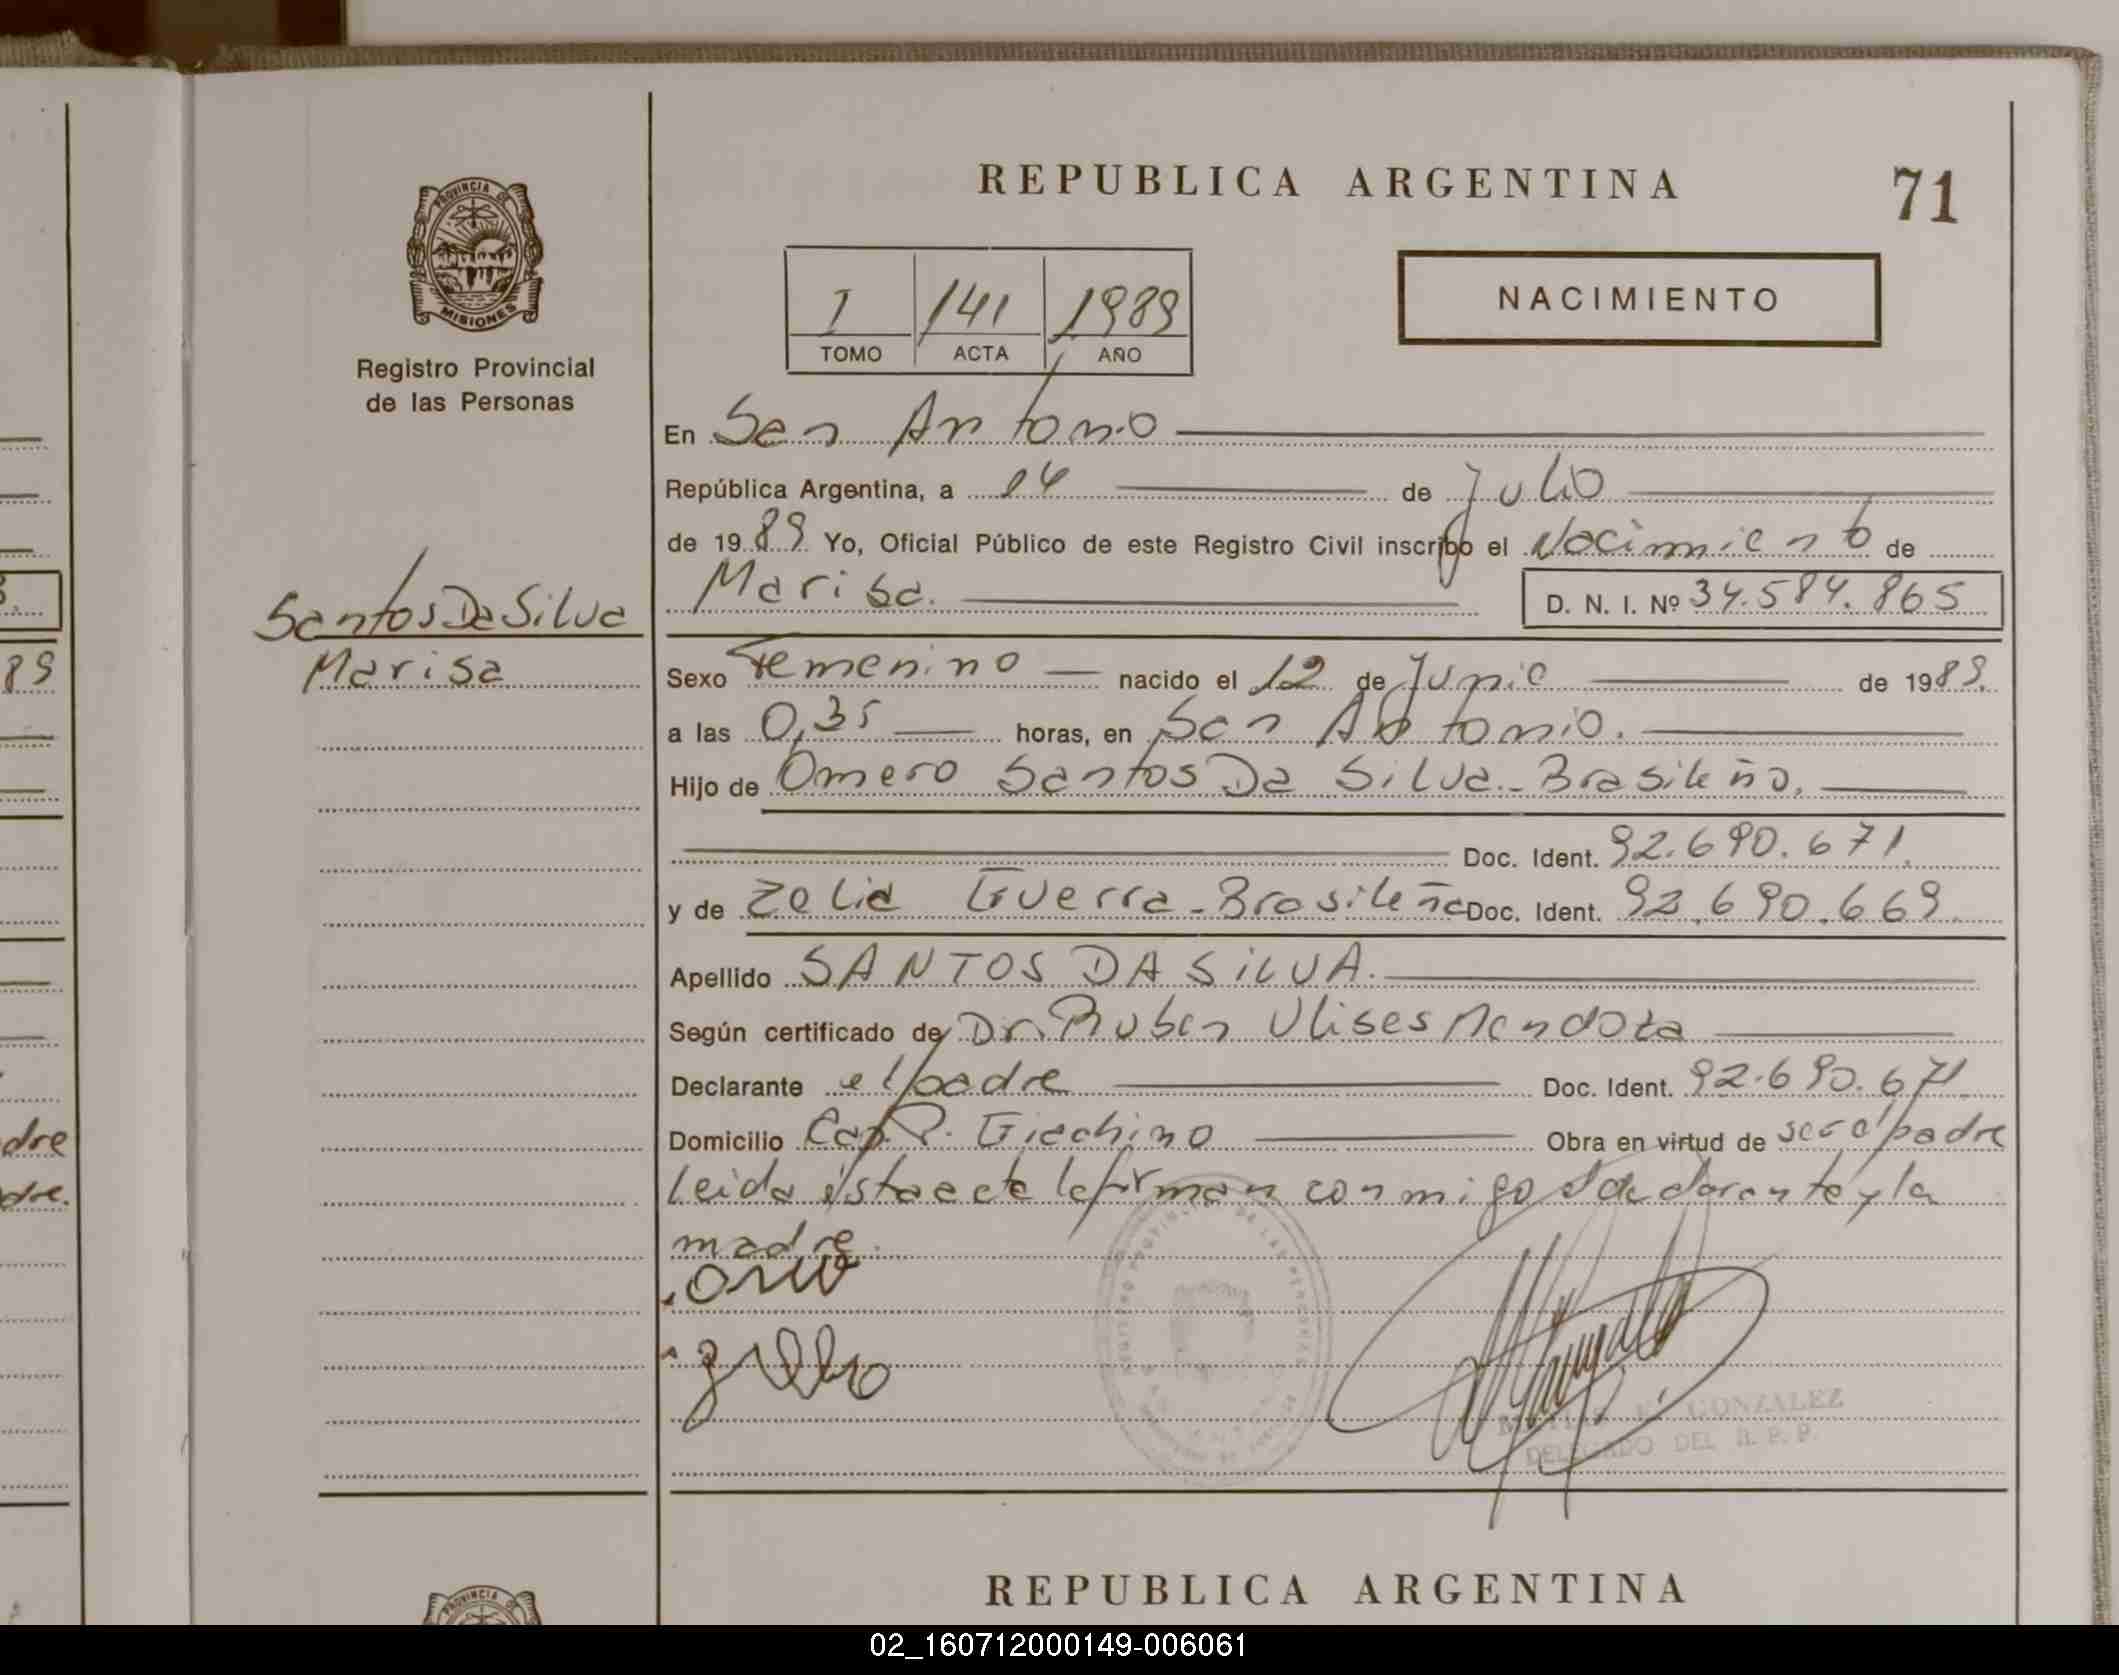 REPUBLICA ARGENTINA
71
PROVINCIA DE
MISIONES
Registro Provincial
de las Personas
I 141 1989
TOMO ACTA AÑO
NACIMIENTO
En San Antonio
República Argentina, a 14 de Julio
de 1989 Yo, Oficial Público de este Registro Civil inscribo el Nacimiento de
Marisa. D. N. I. Nº 34.584.865
Santos Da Silva
Marisa
Sexo Femenino nacido el 12 de Junio de 1989.
a las 0,35 horas, en San Antonio.
Hijo de Omero Santos Da Silva.- Brasileño.
Doc. Ident. 92.690.671.
y de Zelia Guerra - Brasileña Doc. Ident. 92.690.669.
Apellido SANTOS DA SILVA.
Según certificado de Dr. Ruben Ulises Mendoza
Declarante el padre Doc. Ident. 92.690.671
Domicilio Cap. P. Giachino Obra en virtud de ser el padre
Leida ésta acta la firman conmigo el declarante y la
madre.
GONZALEZ
DELEGADO DEL R. P. P.
89
dre
dre.
REPUBLICA ARGENTINA
PROVINCIA DE
02_160712000149-006061